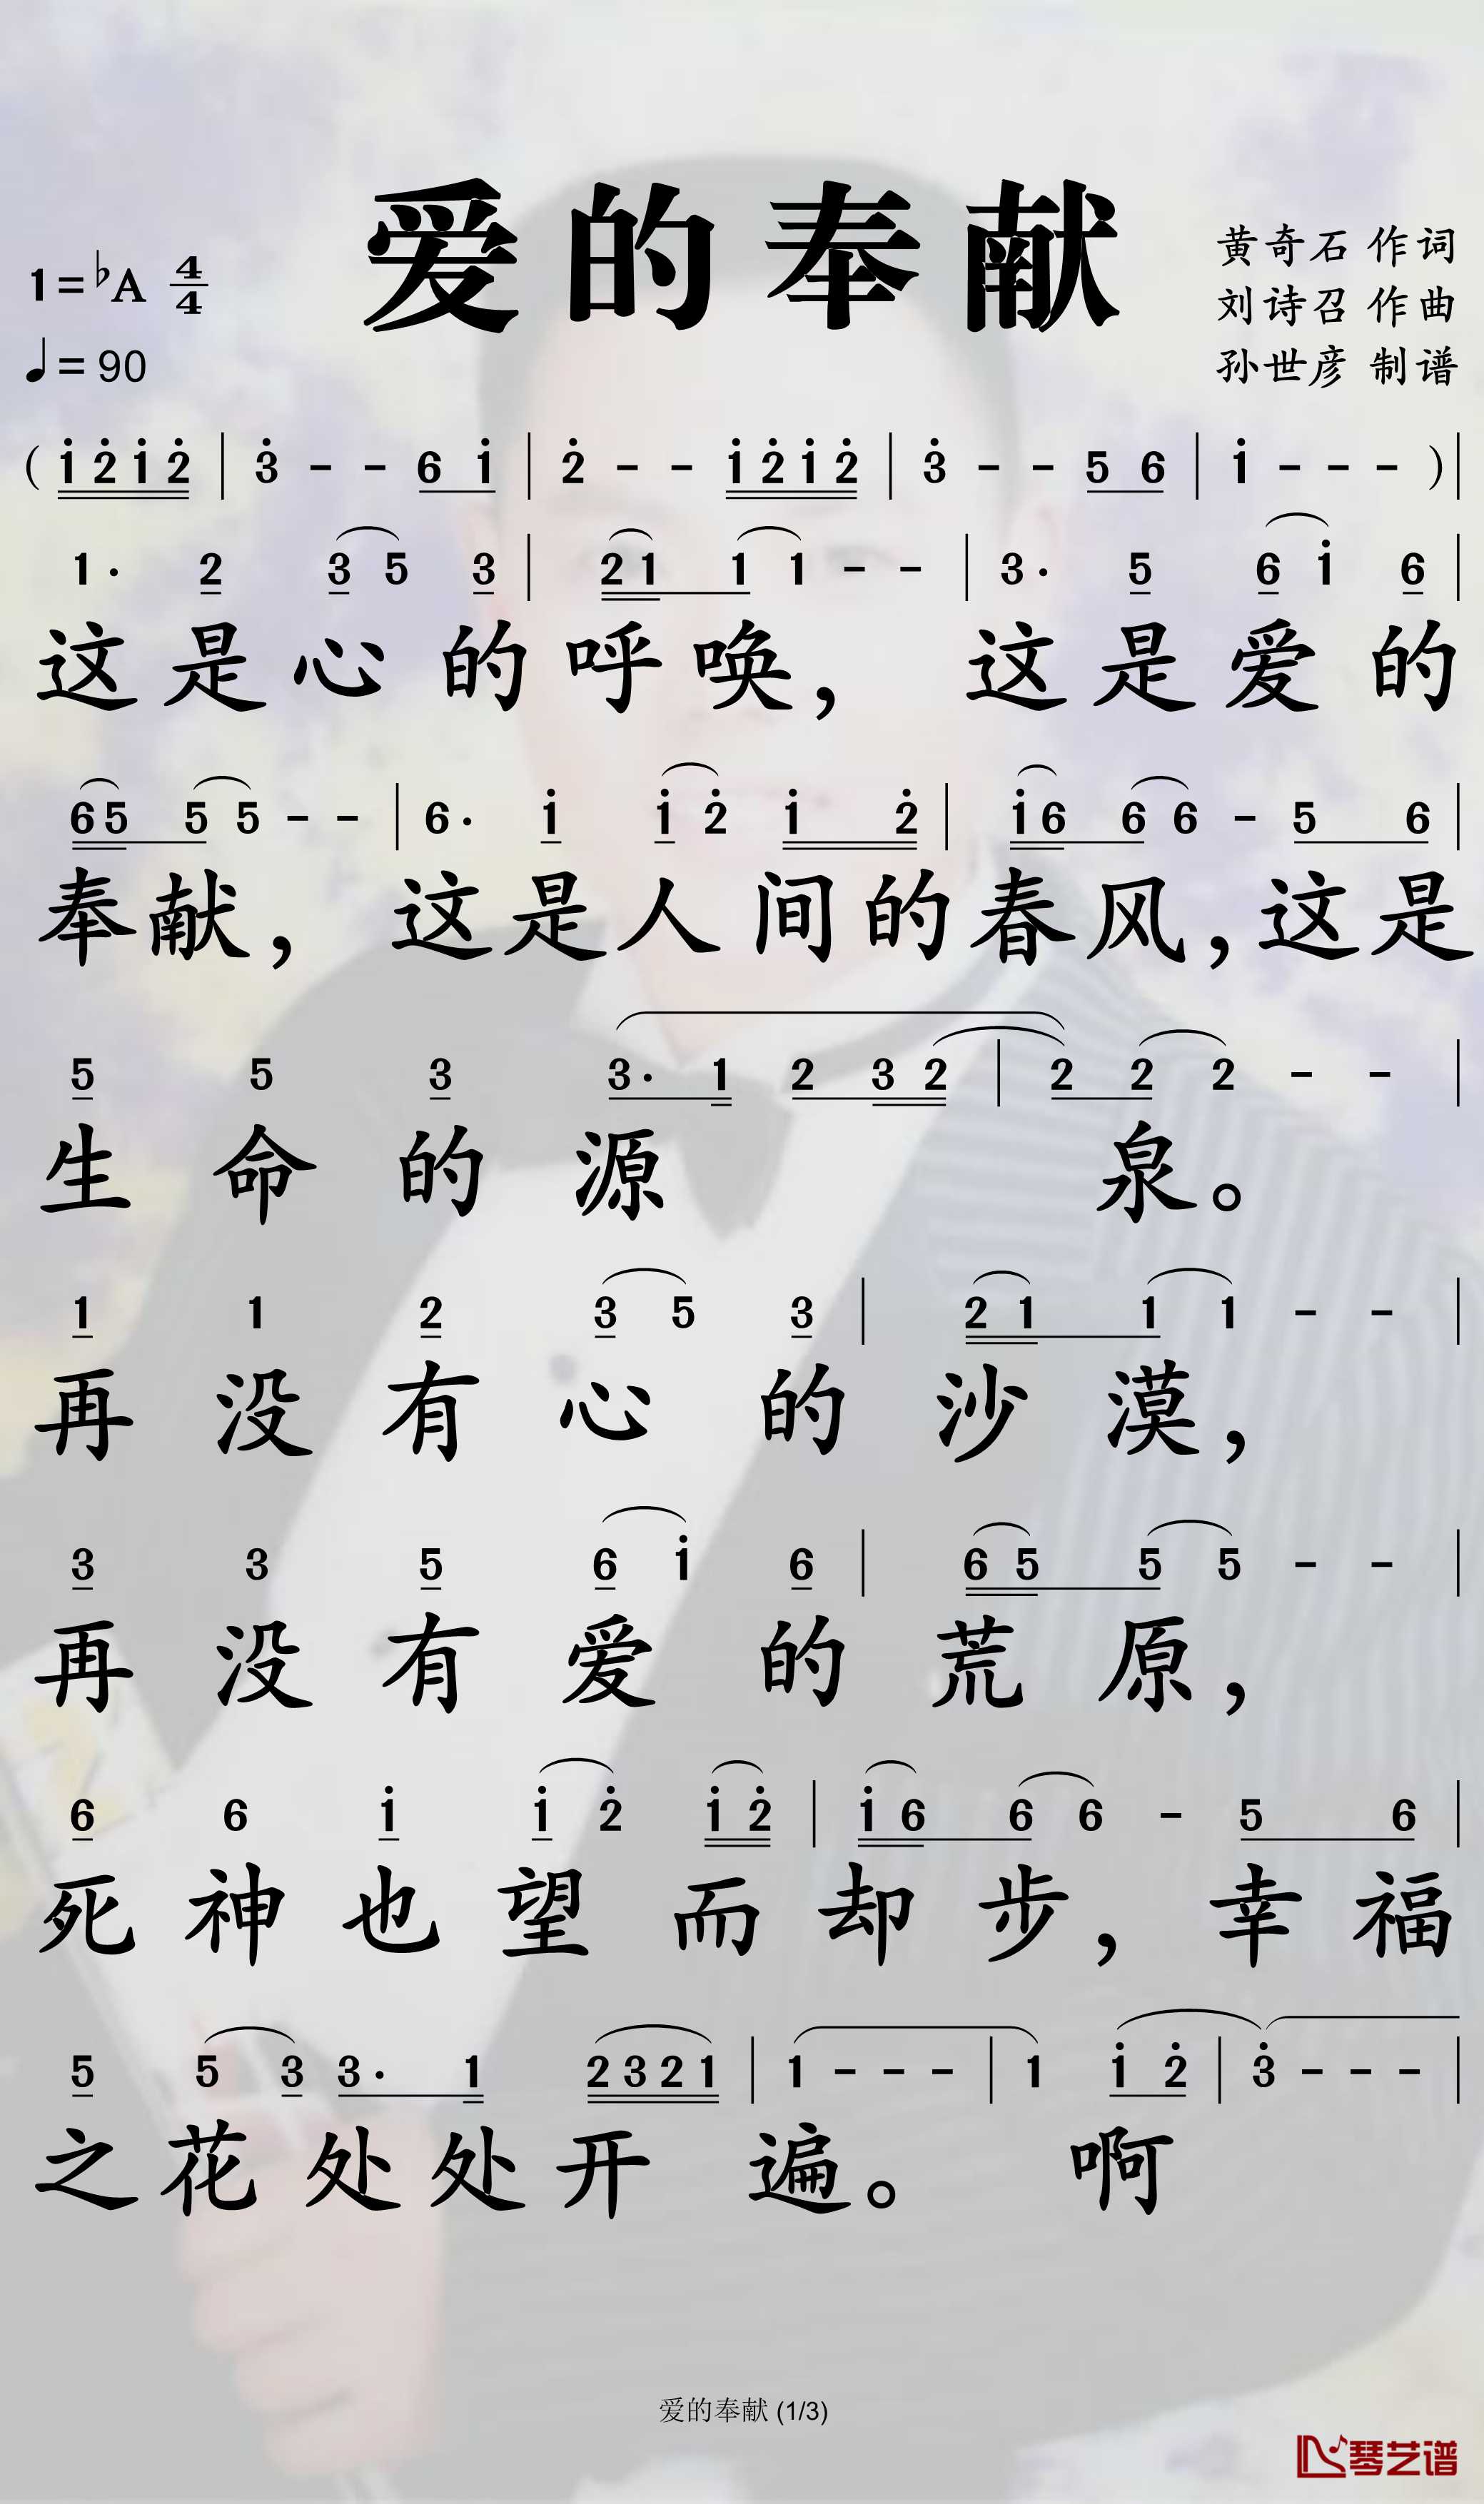 爱的奉献
1=♭A 4/4
♩=90
黄奇石 作词
刘诗召 作曲
孙世彦 制谱
( i̇ 2̇ i̇ 2̇ | 3̇ - - 6 i̇ | 2̇ - - i̇ 2̇ i̇ 2̇ | 3̇ - - 5 6 | i̇ - - - ) |
1· 2 3 5 3 | 2 1 1 1 - - | 3· 5 6 i̇ 6 |
这是心的呼唤， 这是爱的
6 5 5 5 - - | 6· i̇ i̇ 2̇ i̇ 2̇ | i̇ 6 6 6 - 5 6 |
奉献， 这是人间的春风，这是
5 5 3 3· 1 2 3 2 | 2 2 2 - - |
生命的源 泉。
1 1 2 3 5 3 | 2 1 1 1 - - |
再没有心的沙漠，
3 3 5 6 i̇ 6 | 6 5 5 5 - - |
再没有爱的荒原，
6 6 i̇ i̇ 2̇ i̇ 2̇ | i̇ 6 6 6 - 5 6 |
死神也望而却步，幸福
5 5 3 3· 1 2 3 2 1 | 1 - - - | 1 i̇ 2̇ | 3̇ - - - |
之花处处开遍。 啊
爱的奉献 (1/3)
琴艺谱